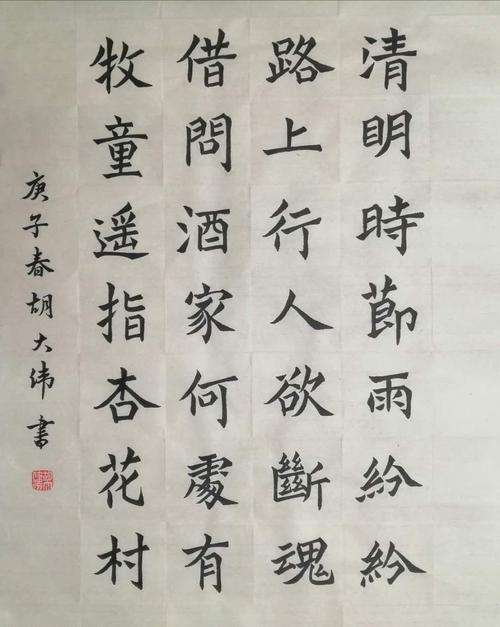 清明時節雨紛紛
路上行人欲斷魂
借問酒家何處有
牧童遥指杏花村
庚子春胡大緯書